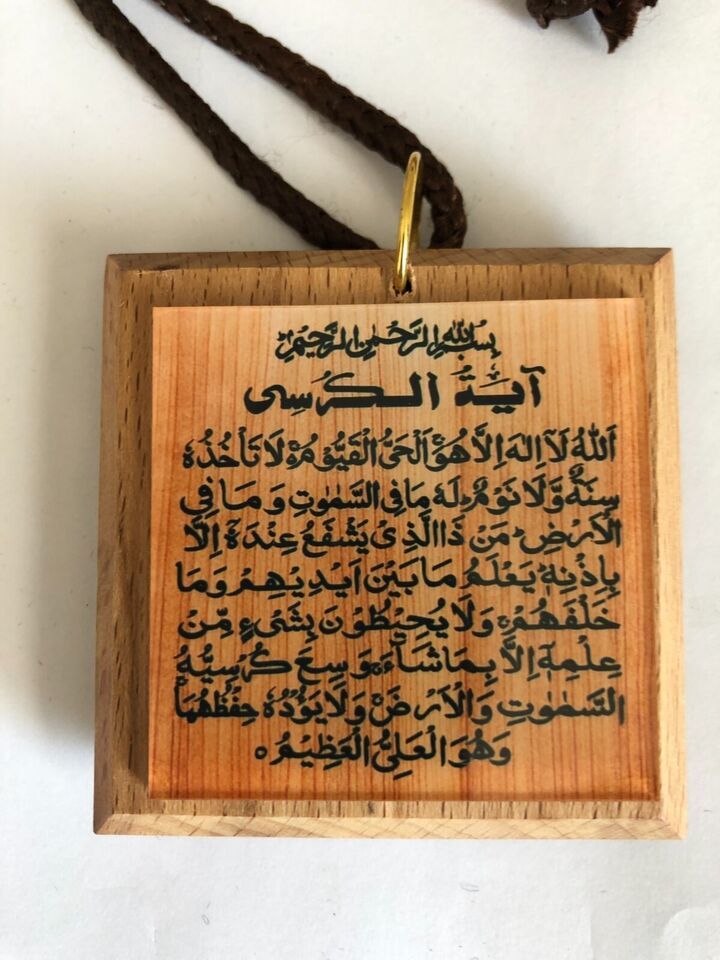 بِسْمِ اللهِ الرَّحْمٰنِ الرَّحِيْمِ
آيَةُ الكُرْسِى
اَللهُ لَآ اِلٰهَ اِلَّا هُوَ ۚ اَلْحَيُّ الْقَيُّوْمُ ۚ لَا تَاْخُذُهٗ
سِنَةٌ وَّلَا نَوْمٌ ؕ لَهٗ مَا فِي السَّمٰوٰتِ وَمَا فِي
الْاَرْضِ ؕ مَنْ ذَا الَّذِيْ يَشْفَعُ عِنْدَهٗٓ اِلَّا
بِاِذْنِهٖ ؕ يَعْلَمُ مَا بَيْنَ اَيْدِيْهِمْ وَمَا
خَلْفَهُمْ ۚ وَلَا يُحِيْطُوْنَ بِشَيْءٍ مِّنْ
عِلْمِهٖٓ اِلَّا بِمَا شَآءَ ۚ وَسِعَ كُرْسِيُّهُ
السَّمٰوٰتِ وَالْاَرْضَ ۚ وَلَا يَؤُدُهٗ حِفْظُهُمَا ۚ
وَهُوَ الْعَلِيُّ الْعَظِيْمُ ۝